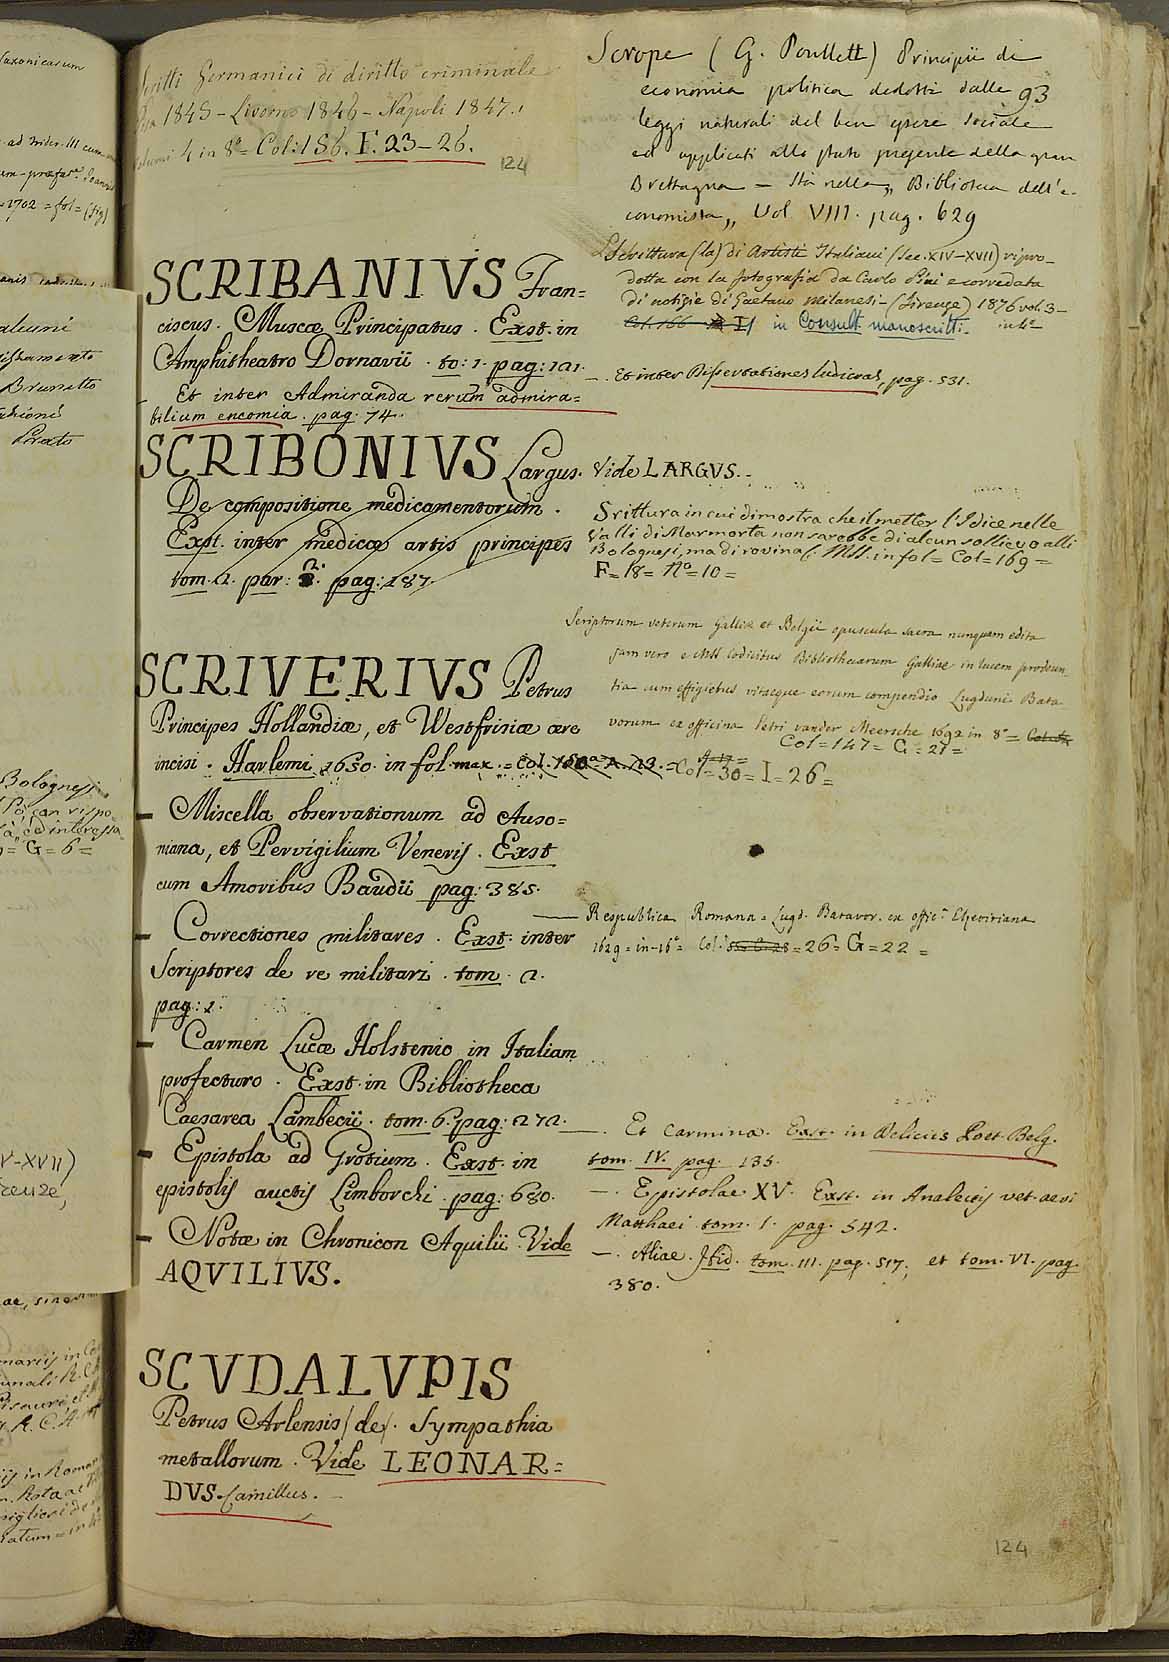 Saxonicarum
Scritti Germanici di diritto criminale
1845 - Livorno 1846 - Napoli 1847.
4 in 8º = Col: 186. F. 23 - 26.
124
SCRIBANIVS Fran=
ciscus. Muscæ Principatus. Exst. in
Amphitheatro Dornavii. to: 1. pag: 121.
Et inter Admiranda rerum admira=
bilium encomia. pag. 74.
SCRIBONIVS Largus. Vide LARGVS.
De compositione medicamentorum.
Exst. inter medicæ artis principes
tom. 2. par: 2. pag: 187
SCRIVERIVS Petrus
Principes Hollandiæ, et Westfrisiæ ære
incisi. Harlemi 1650. in fol. max. = Col. = Col = 30 = I = 26 =
– Miscella observationum ad Auso=
niana, et Pervigilium Veneris. Exst
cum Amoribus Baudii pag: 385.
– Correctiones militares. Exst. inter
Scriptores de re militari. tom. 2.
pag: 1.
– Carmen Lucæ Holstenio in Italiam
profecturo. Exst. in Bibliotheca
Caesarea Lambecii. tom. 6. pag: 272.
– Epistola ad Grotium. Exst. in
epistolis auctis Limborchi. pag: 680.
– Notæ in Chronicon Aquilii. Vide
AQVILIVS.
SCVDALVPIS
Petrus Arlensis (de). Sympathia
metallorum. Vide LEONAR=
DVS. Camillus.
Scrope (G. Poullett) Principii di
economia politica dedotti dalle 93
leggi naturali del ben essere sociale
ed applicati allo stato presente della gran
Brettagna = Sta nella „ Biblioteca dell'e-
conomista „ Vol. VIII. pag. 629
Scrittura (la) di Artisti Italiani (Sec. XIV-XVII) ripro-
dotta con la fotografia da Carlo Pini e corredata
di notizie di Gaetano Milanesi - (Firenze) 1876 vol. 3 -
in 4º
Col. 166 in Consult. manoscritti.
–. Et inter Dissertationes ludicras, pag. 531.
Srittura in cui dimostra che il metter l'Idice nelle
Valli di Marmorta non sarebbe di alcun sollievo alli
Bolognesi, ma di rovina (. MSS. in fol = Col = 169 =
F = 18 = Nº = 10 =
Scriptorum veterum Galliæ et Belgii opuscula sacra nunquam edita
jam vero e MSS codicibus Bibliothecarum Galliae in lucem prodeun-
tia cum effigiebus vitæque eorum compendio Lugduni Bata
vorum ex officina Petri vander Meersche 1692 in 8º =
Col = 147 = G = 21 =
– Respublica Romana = Lugd. Batavor. ex offic.ª Elzeviriana
1629 = in-16º = Col. = 26 = G = 22 =
–. Et Carmina. Exst. in Deliciis Poet. Belg.
tom. IV. pag. 135.
–. Epistolae XV. Exst. in Analectis vet. aevi
Matthaei tom. I. pag. 542.
–. Aliae. Ibid. tom. III. pag. 517, et tom. VI. pag.
380.
124